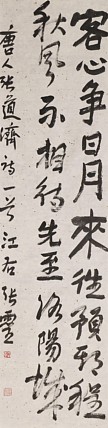 客心爭日月來往預期程
秋風不相待先至洛陽城
唐人張道濟詩一首 江右張